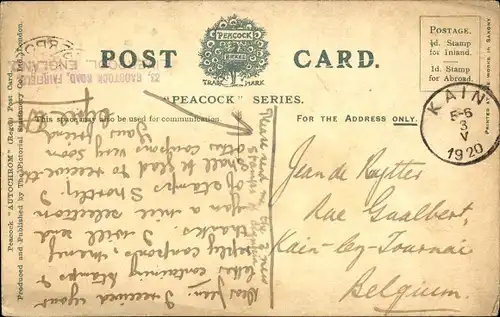 POST CARD.
PEACOCK
TRADE MARK
"PEACOCK" SERIES.
This space may also be used for communication.
FOR THE ADDRESS ONLY.
POSTAGE.
½d. Stamp
for Inland.
1d. Stamp
for Abroad.
KAIN
5-6
3
V
1920
Jean de Ruytter
Rue Gualbert,
Kain-lez-Tournai
Belgium.
23, RADSTOCK ROAD, FAIRFIELD
ENGLAND.
Dear Jean: I received your
letter containing stamps &
reply coupons, many
thanks. I will send
you a nice selection
of stamps shortly. I
shall be glad to receive the
other coupons very soon
Your friend
Please send me the 2 new
Peacock "AUTOCHROM" (Regd.) Post Card.
Produced and Published by The Pictorial Stationery Co., Ltd., London.